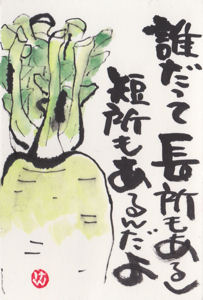 誰だって長所もあるし
短所もあるんだよ